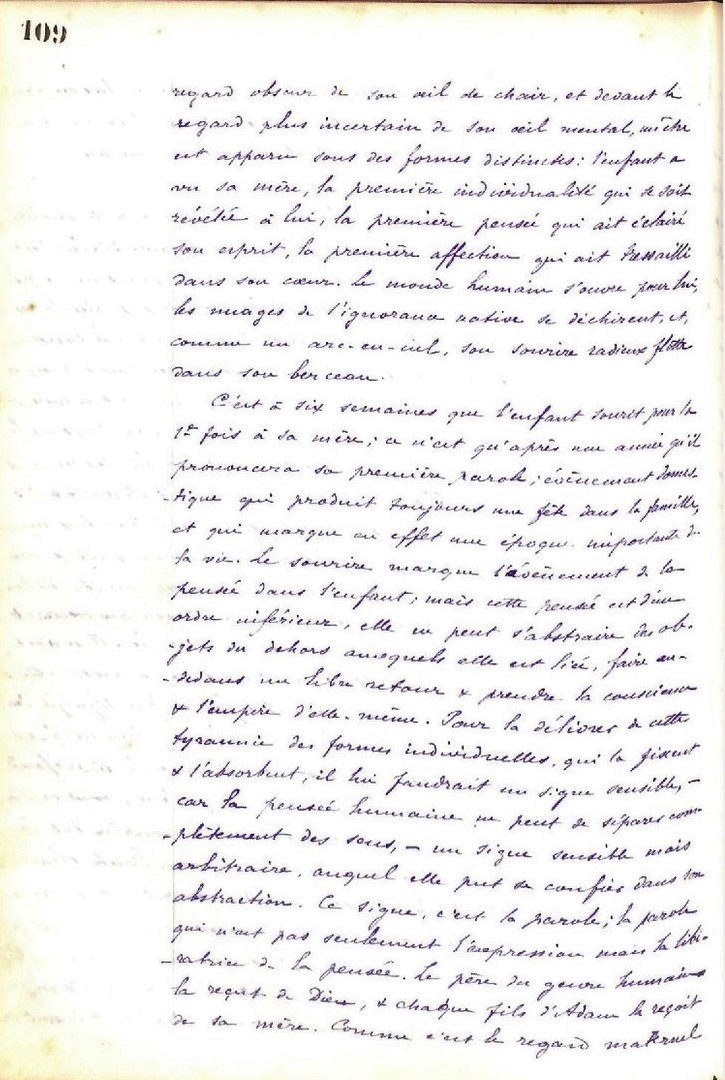 109
regard obscur de son œil de chair, et devant le
regard plus incertain de son œil mental, un être
est apparu sous des formes distinctes : l'enfant a
vu sa mère, la première individualité qui se soit
révélée à lui, la première pensée qui ait éclairé
son esprit, la première affection qui ait tressailli
dans son cœur. Le monde humain s'ouvre pour lui,
les nuages de l'ignorance native se déchirent, et,
comme un arc-en-ciel, son sourire radieux flotte
dans son berceau.
C'est à six semaines que l'enfant sourit pour la
1re fois à sa mère ; ce n'est qu'après une année qu'il
prononcera sa première parole ; évènement domes-
-tique qui produit toujours une fête dans la famille,
et qui marque en effet une époque importante de
la vie. Le sourire marque l'évènement de la
pensée dans l'enfant ; mais cette pensée est d'un
ordre inférieur, elle ne peut s'abstraire des ob-
-jets du dehors auxquels elle est liée, faire en-
-dedans un libre retour & prendre la conscience
& l'empire d'elle-même. Pour la délivrer de cette
tyrannie des formes individuelles, qui la fixent
& l'absorbent, il lui faudrait un signe sensible, –
car la pensée humaine ne peut se séparer com-
-plètement des sens, – un signe sensible mais
arbitraire, auquel elle pût se confier dans son
abstraction. Ce signe, c'est la parole ; la parole
qui n'est pas seulement l'expression mais la libé-
-ratrice de la pensée. Le père du genre humain
la reçut de Dieu, & chaque fils d'Adam la reçoit
de sa mère. Comme c'est le regard maternel